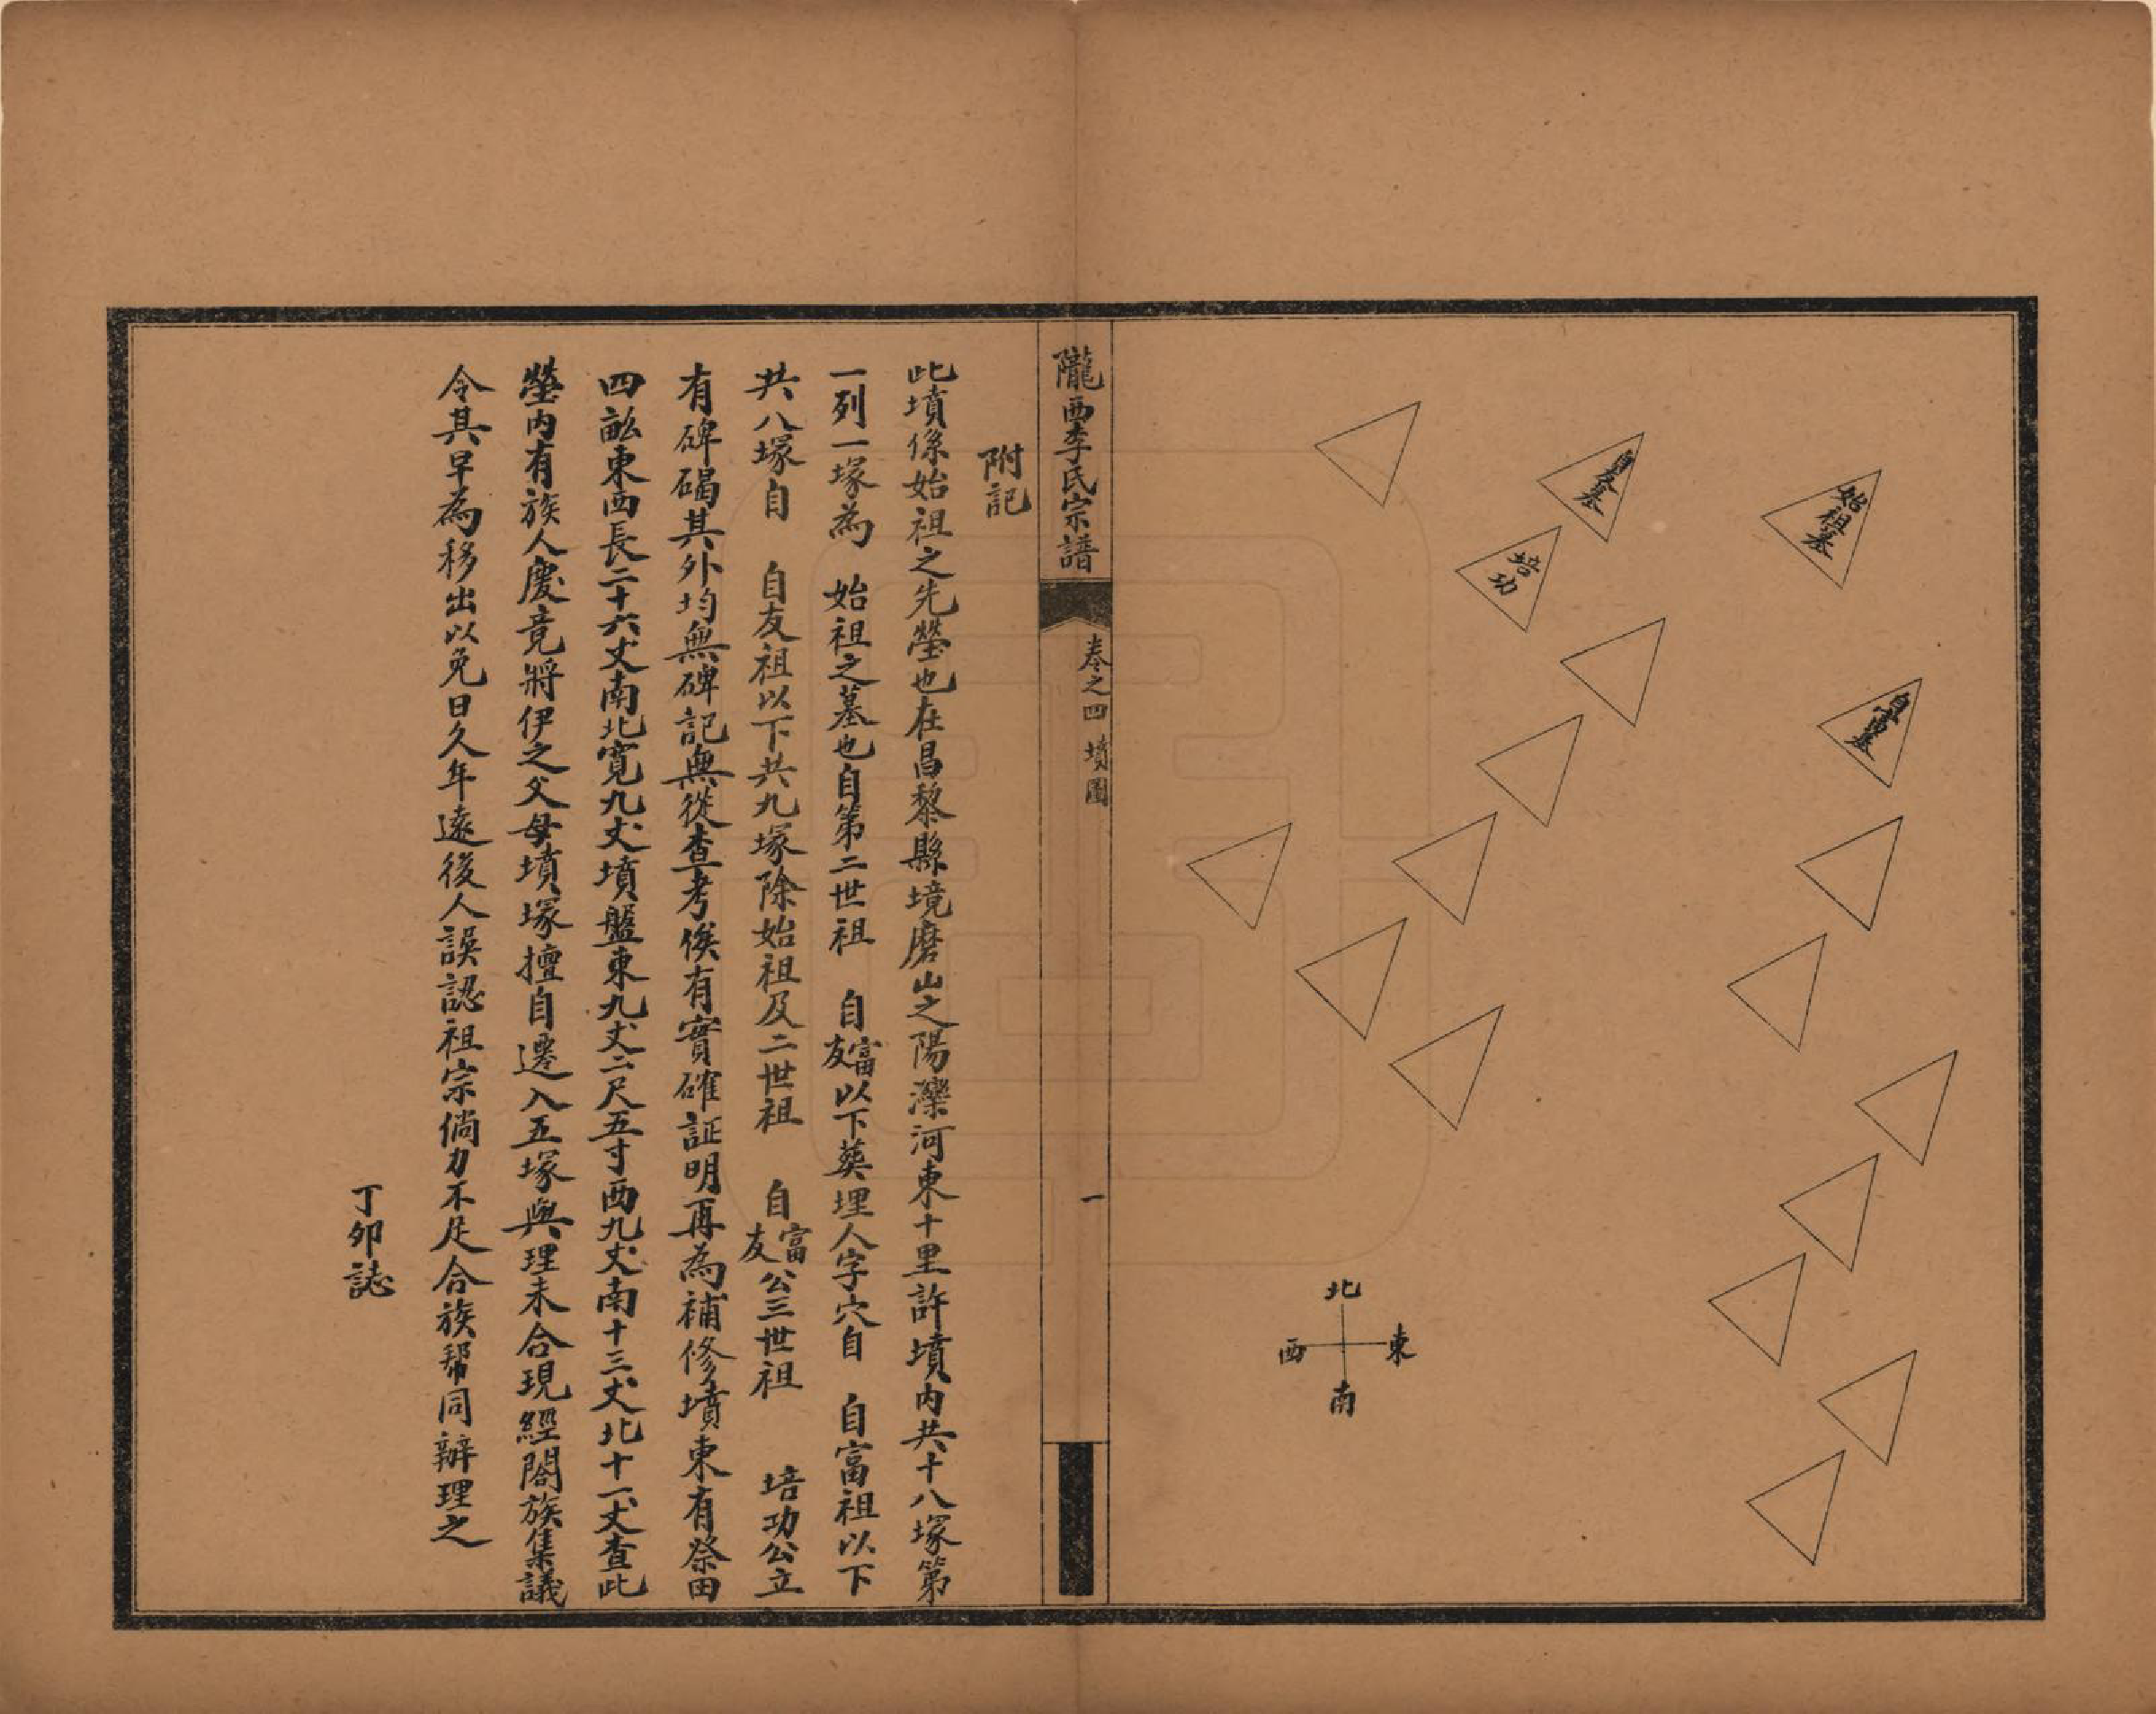 始祖墓
自友墓
培功
自富墓
北
東
西
南
隴西李氏宗譜
卷之四 墳圖
一
附記
此墳係始祖之先塋也在昌黎縣境磨山之陽灤河東十里許墳内共十八塚第
一列一塚為 始祖之墓也自第二世祖 自富友以下葬埋人字穴自 自富祖以下
共八塚自 自友祖以下共九塚除始祖及二世祖 自富友公三世祖 培功公立
有碑碣其外均無碑記無從查考俟有實確証明再為補修墳東有祭田
四畝東西長二十六丈南北寬九丈墳盤東九丈二尺五寸西九丈南十三丈北十一丈查此
塋内有族人慶竟將伊之父母墳塚擅自遷入五塚與理未合現經閤族集議
令其早為移出以免日久年遠後人誤認祖宗倘力不足合族帮同辦理之
丁卯誌